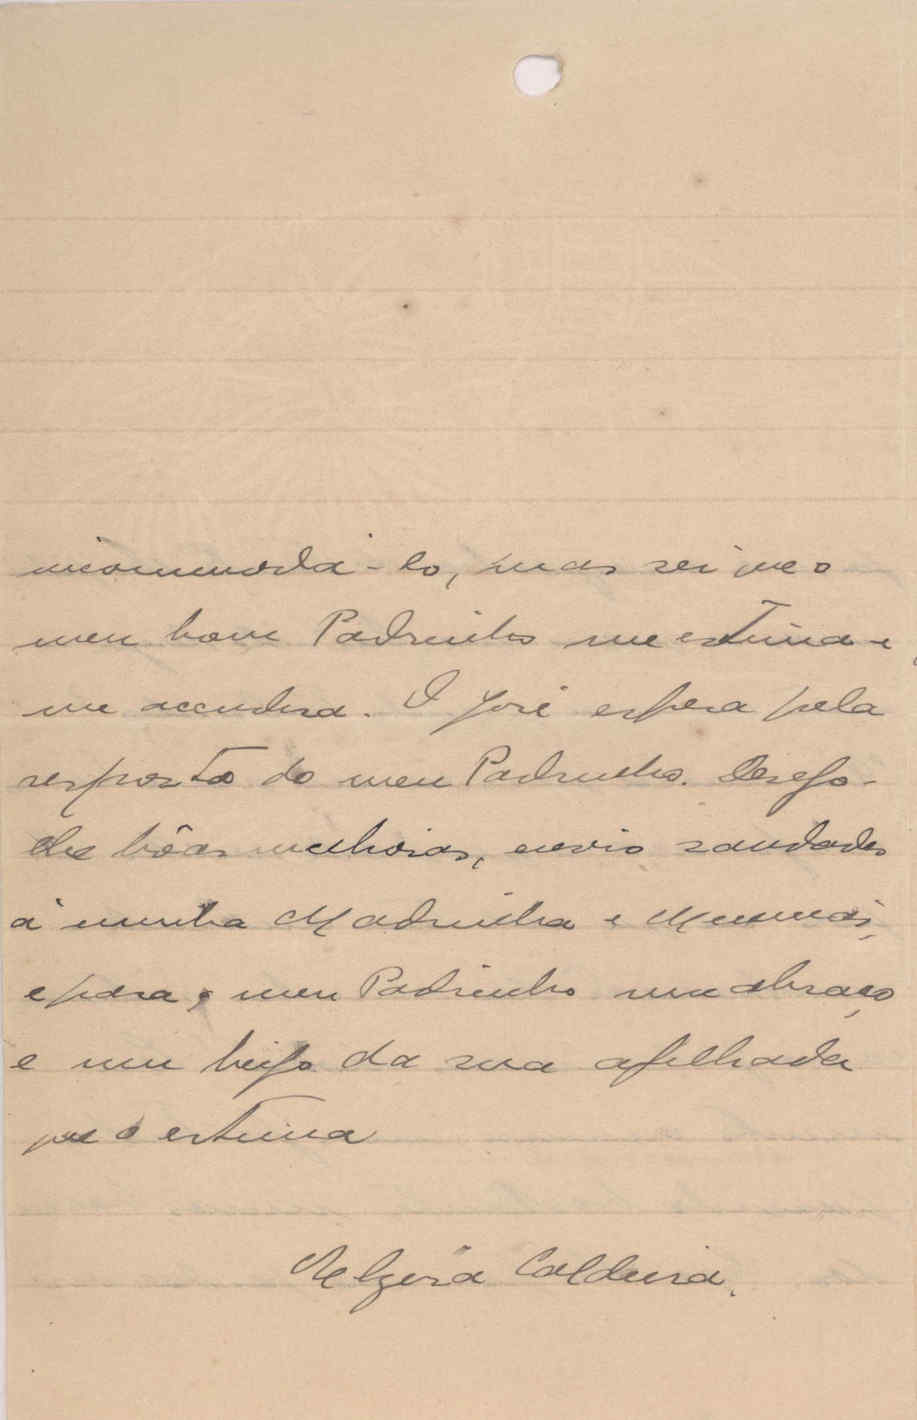 incommodá-lo, mas sei que o
meu bom Padrinho me estima e
me accudira. O José espera pela
resposta do meu Padrinho. Desejo-
lhe bôas melhoras, envio saudades
á minha Madrinha e Mummás,
e para o meu Padrinho um abraço
e um beijo da sua afilhada
que o estima
Alzira Caldeira.